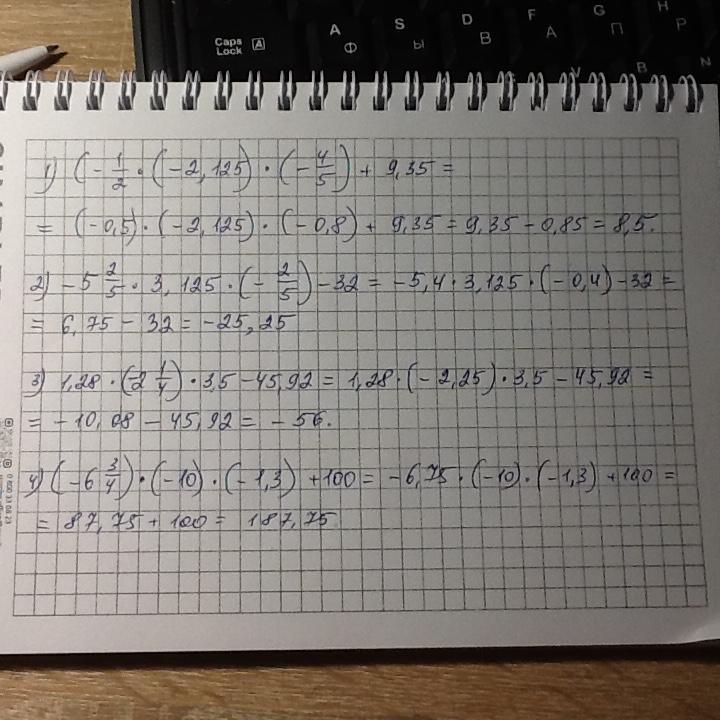 Caps Lock A
A Ф
S Ы
D В
F А
G П
H Р
V
B
N
1) (-1/2 · (-2,125) · (-4/5) + 9,35 =
= (-0,5) · (-2,125) · (-0,8) + 9,35 = 9,35 - 0,85 = 8,5.
2) -5 2/5 · 3,125 · (-2/5) - 32 = -5,4 · 3,125 · (-0,4) - 32 =
= 6,75 - 32 = -25,25
3) 1,28 · (2 1/4) · 3,5 - 45,92 = 1,28 · (-2,25) · 3,5 - 45,92 =
= -10,08 - 45,92 = -56.
4) (-6 3/4) · (-10) · (-1,3) + 100 = -6,75 · (-10) · (-1,3) + 100 =
= 87,75 + 100 = 187,75